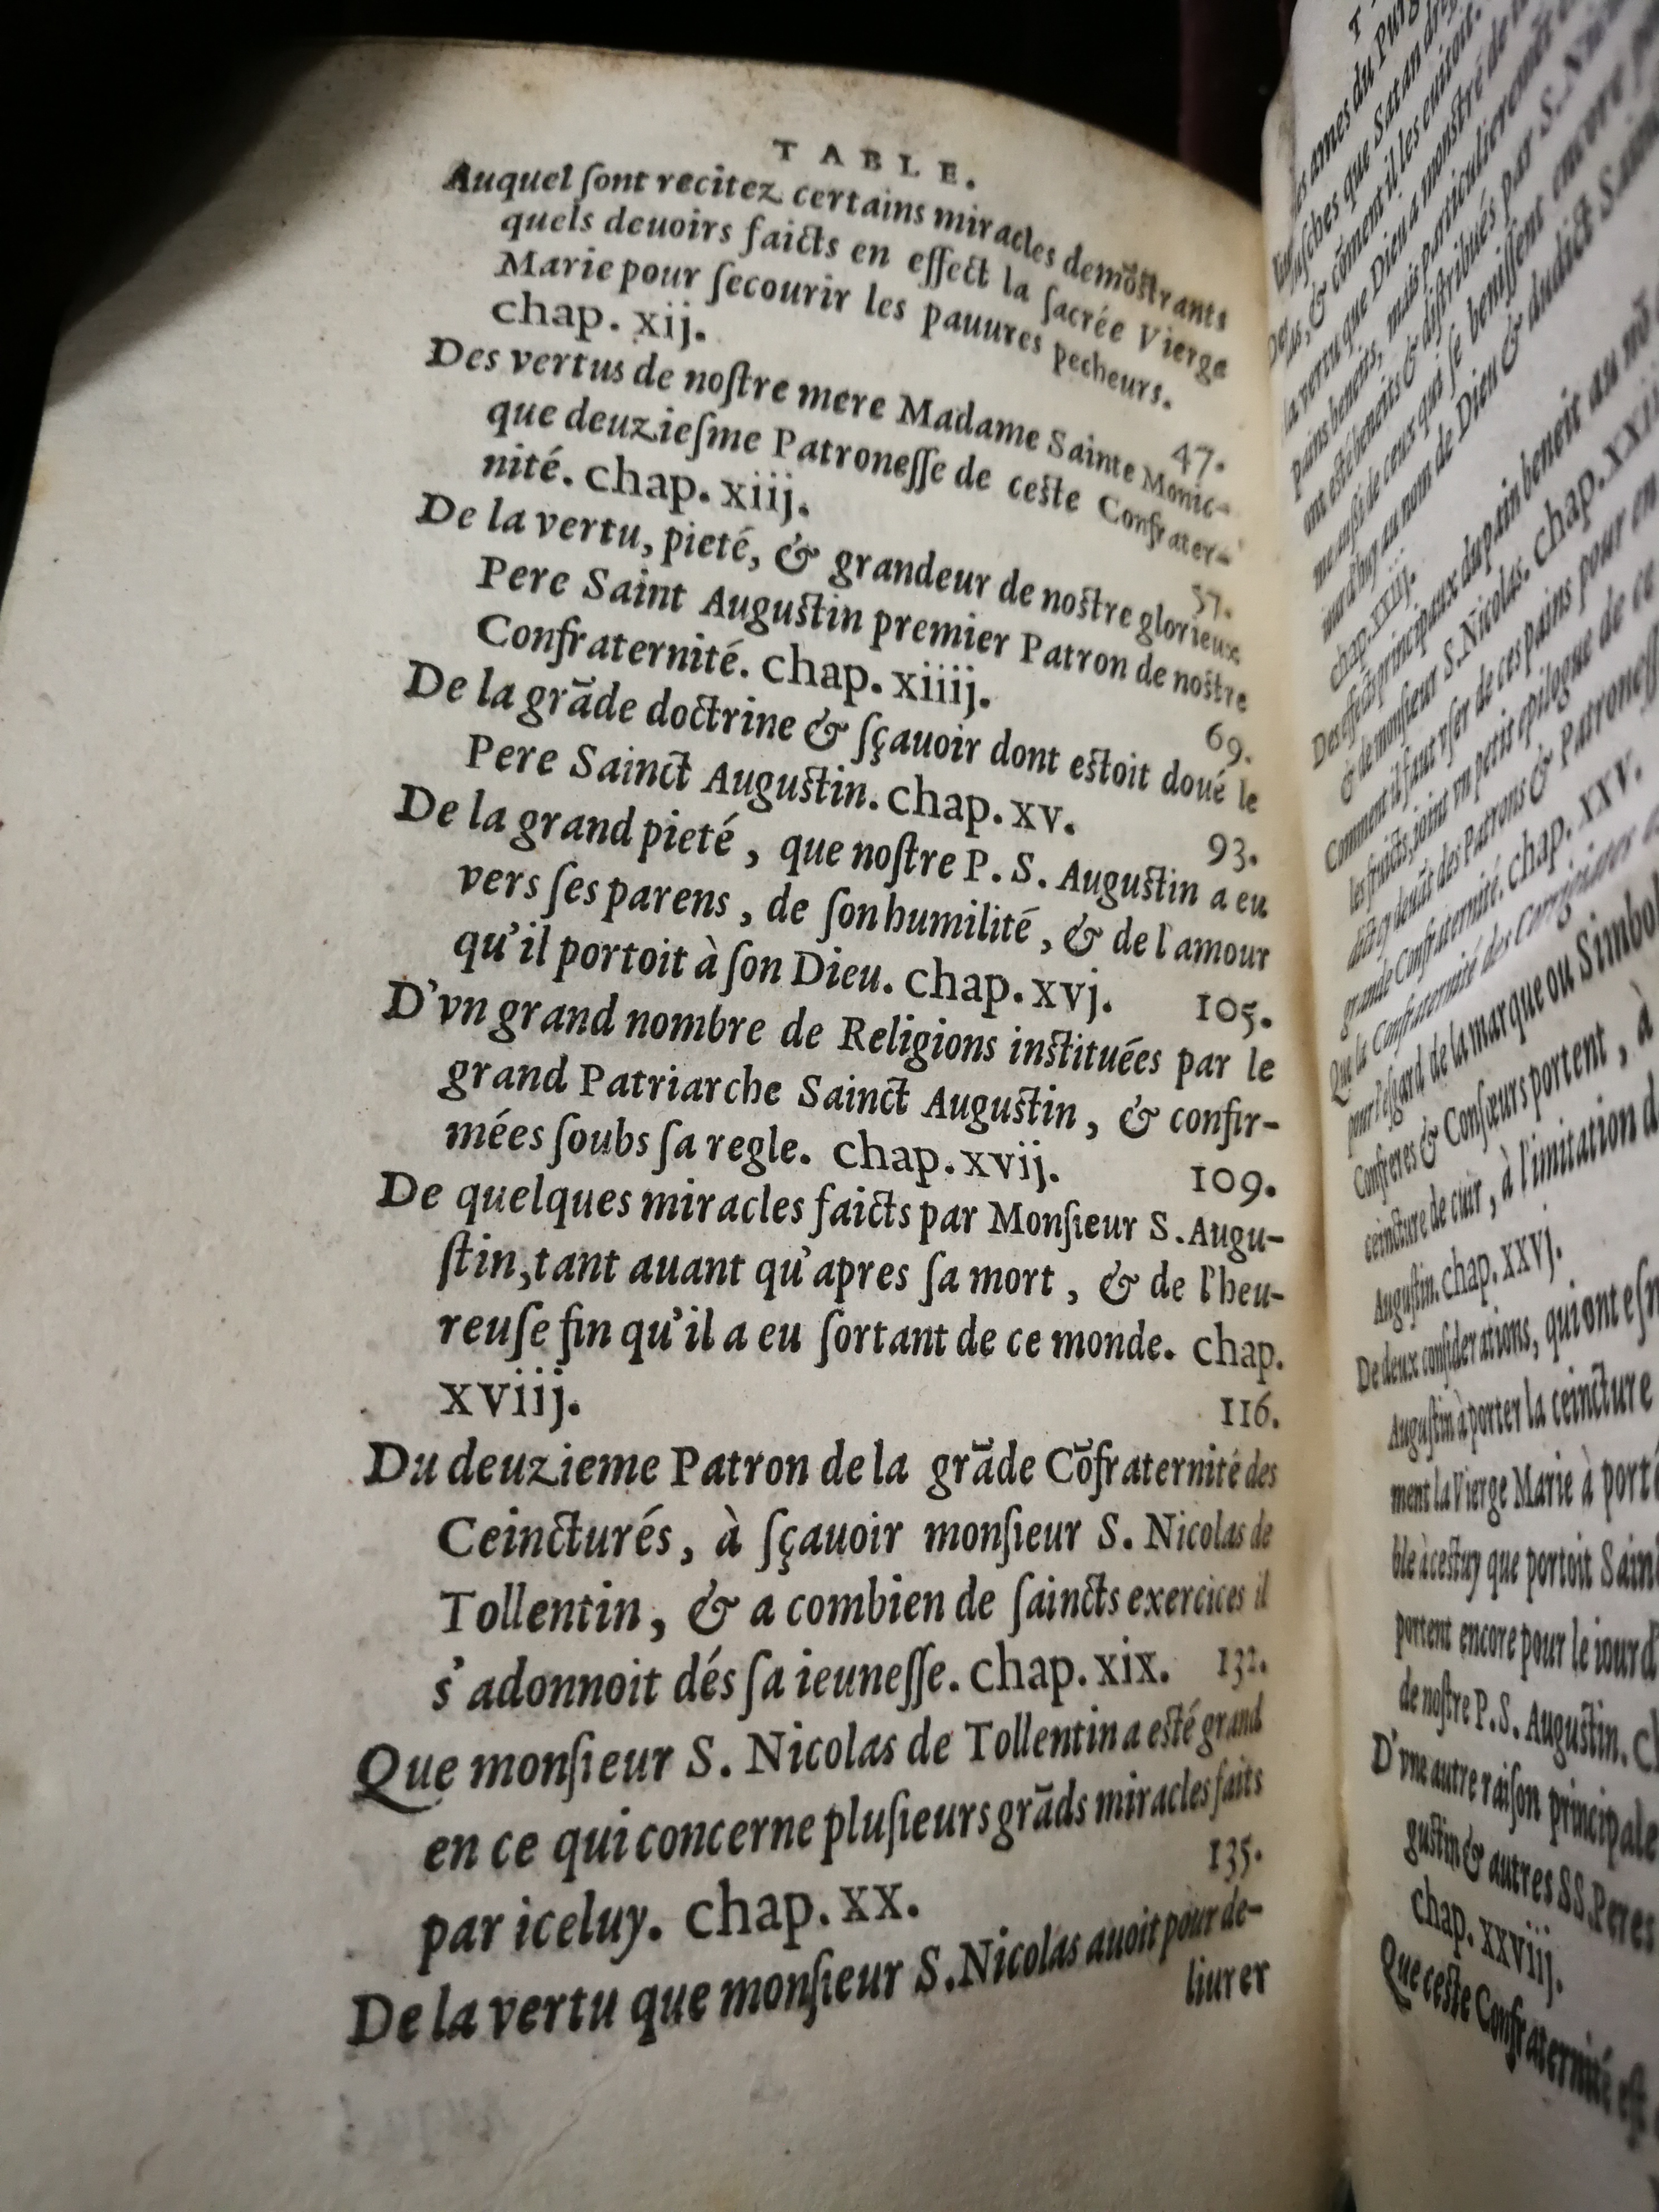 TABLE.
Auquel ſont recitez certains miracles demõſtrants
quels deuoirs faicts en effect la ſacrée Vierge
Marie pour ſecourir les pauures pecheurs.
chap. xij. 47.
Des vertus de noſtre mere Madame Sainte Monic-
que deuzieſme Patroneſſe de ceſte Confrater-
nité. chap. xiij. 57.
De la vertu, pieté, & grandeur de noſtre glorieux
Pere Saint Auguſtin premier Patron de noſtre
Confraternité. chap. xiiij. 69.
De la grãde doctrine & ſçauoir dont eſtoit doué le
Pere Sainct Auguſtin. chap. xv. 93.
De la grand pieté, que noſtre P. S. Auguſtin a eu
vers ſes parens, de ſon humilité, & de l'amour
qu'il portoit à ſon Dieu. chap. xvj. 105.
D'vn grand nombre de Religions inſtituées par le
grand Patriarche Sainct Auguſtin, & confir-
mées ſoubs ſa regle. chap. xvij. 109.
De quelques miracles faicts par Monſieur S. Augu-
ſtin, tant auant qu'apres ſa mort, & de l'heu-
reuſe fin qu'il a eu ſortant de ce monde. chap.
xviij. 116.
Du deuzieme Patron de la grãde Cõfraternité des
Ceincturés, à ſçauoir monſieur S. Nicolas de
Tollentin, & a combien de ſaincts exercices il
s'adonnoit dés ſa ieuneſſe. chap. xix. 132.
Que monſieur S. Nicolas de Tollentin a eſté grand
en ce qui concerne pluſieurs grãds miracles faits
par iceluy. chap. xx. 135.
De la vertu que monſieur S. Nicolas auoit pour de-
liurer
ames du Purg
que Satan
& cõment il les
la vertu que Dieu a monſtré de
pains benents, mais particulierement
ont eſté benents & diſtribués par S. Ni
me auſsi de ceux qui ſe beniſſent encore
iourd'huy au nom de Dieu & dudict Sainct
chap. xxiij.
Des effects principaux du pain beneit au nõ
& de monſieur S. Nicolas. chap. xxi
Comment il faut vſer de ces pains pour en
les fruicts, joint vn petit epilogue de ce
dict cy deuãt des Patrons & Patroneſſ
grande Confraternité. chap. xxv.
Que la Confraternité des Corrigiates
pour l'eſgard de la marque ou Simbol
Confreres & Conſœurs portent, à
ceincture de cuir, à l'imitation d
Auguſtin. chap. xxvj.
De deux conſiderations, qui ont eſm
Auguſtin à porter la ceincture
ment la Vierge Marie à porté
ble à ceſtuy que portoit Sain
portent encore pour le iourd'
de noſtre P. S. Auguſtin. c
D'vne autre raiſon principale
guſtin & autres SS. Peres
chap. xxviij.
Que ceſte Confraternité eſt